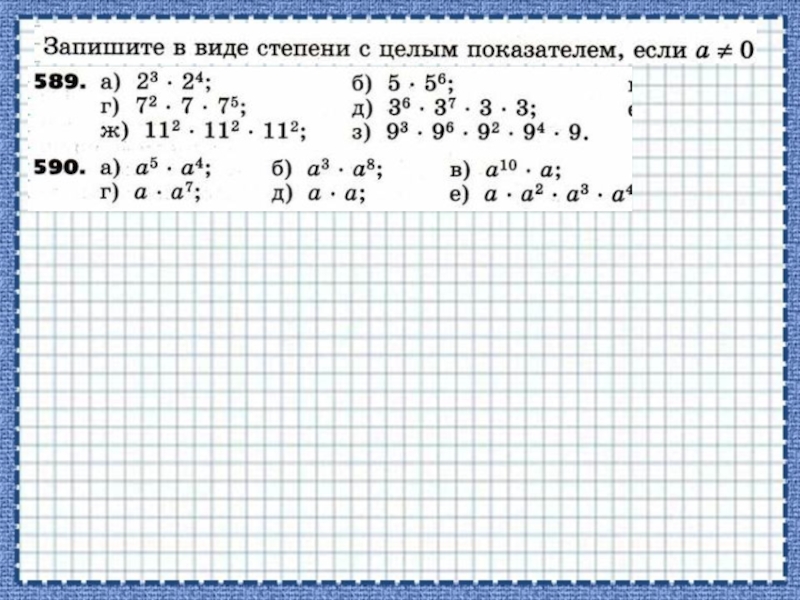 Запишите в виде степени с целым показателем, если a ≠ 0
589. а) 2³ · 2⁴; б) 5 · 5⁶;
г) 7² · 7 · 7⁵; д) 3⁶ · 3⁷ · 3 · 3;
ж) 11² · 11² · 11²; з) 9³ · 9⁶ · 9² · 9⁴ · 9.
590. а) a⁵ · a⁴; б) a³ · a⁸; в) a¹⁰ · a;
г) a · a⁷; д) a · a; е) a · a² · a³ · a⁴